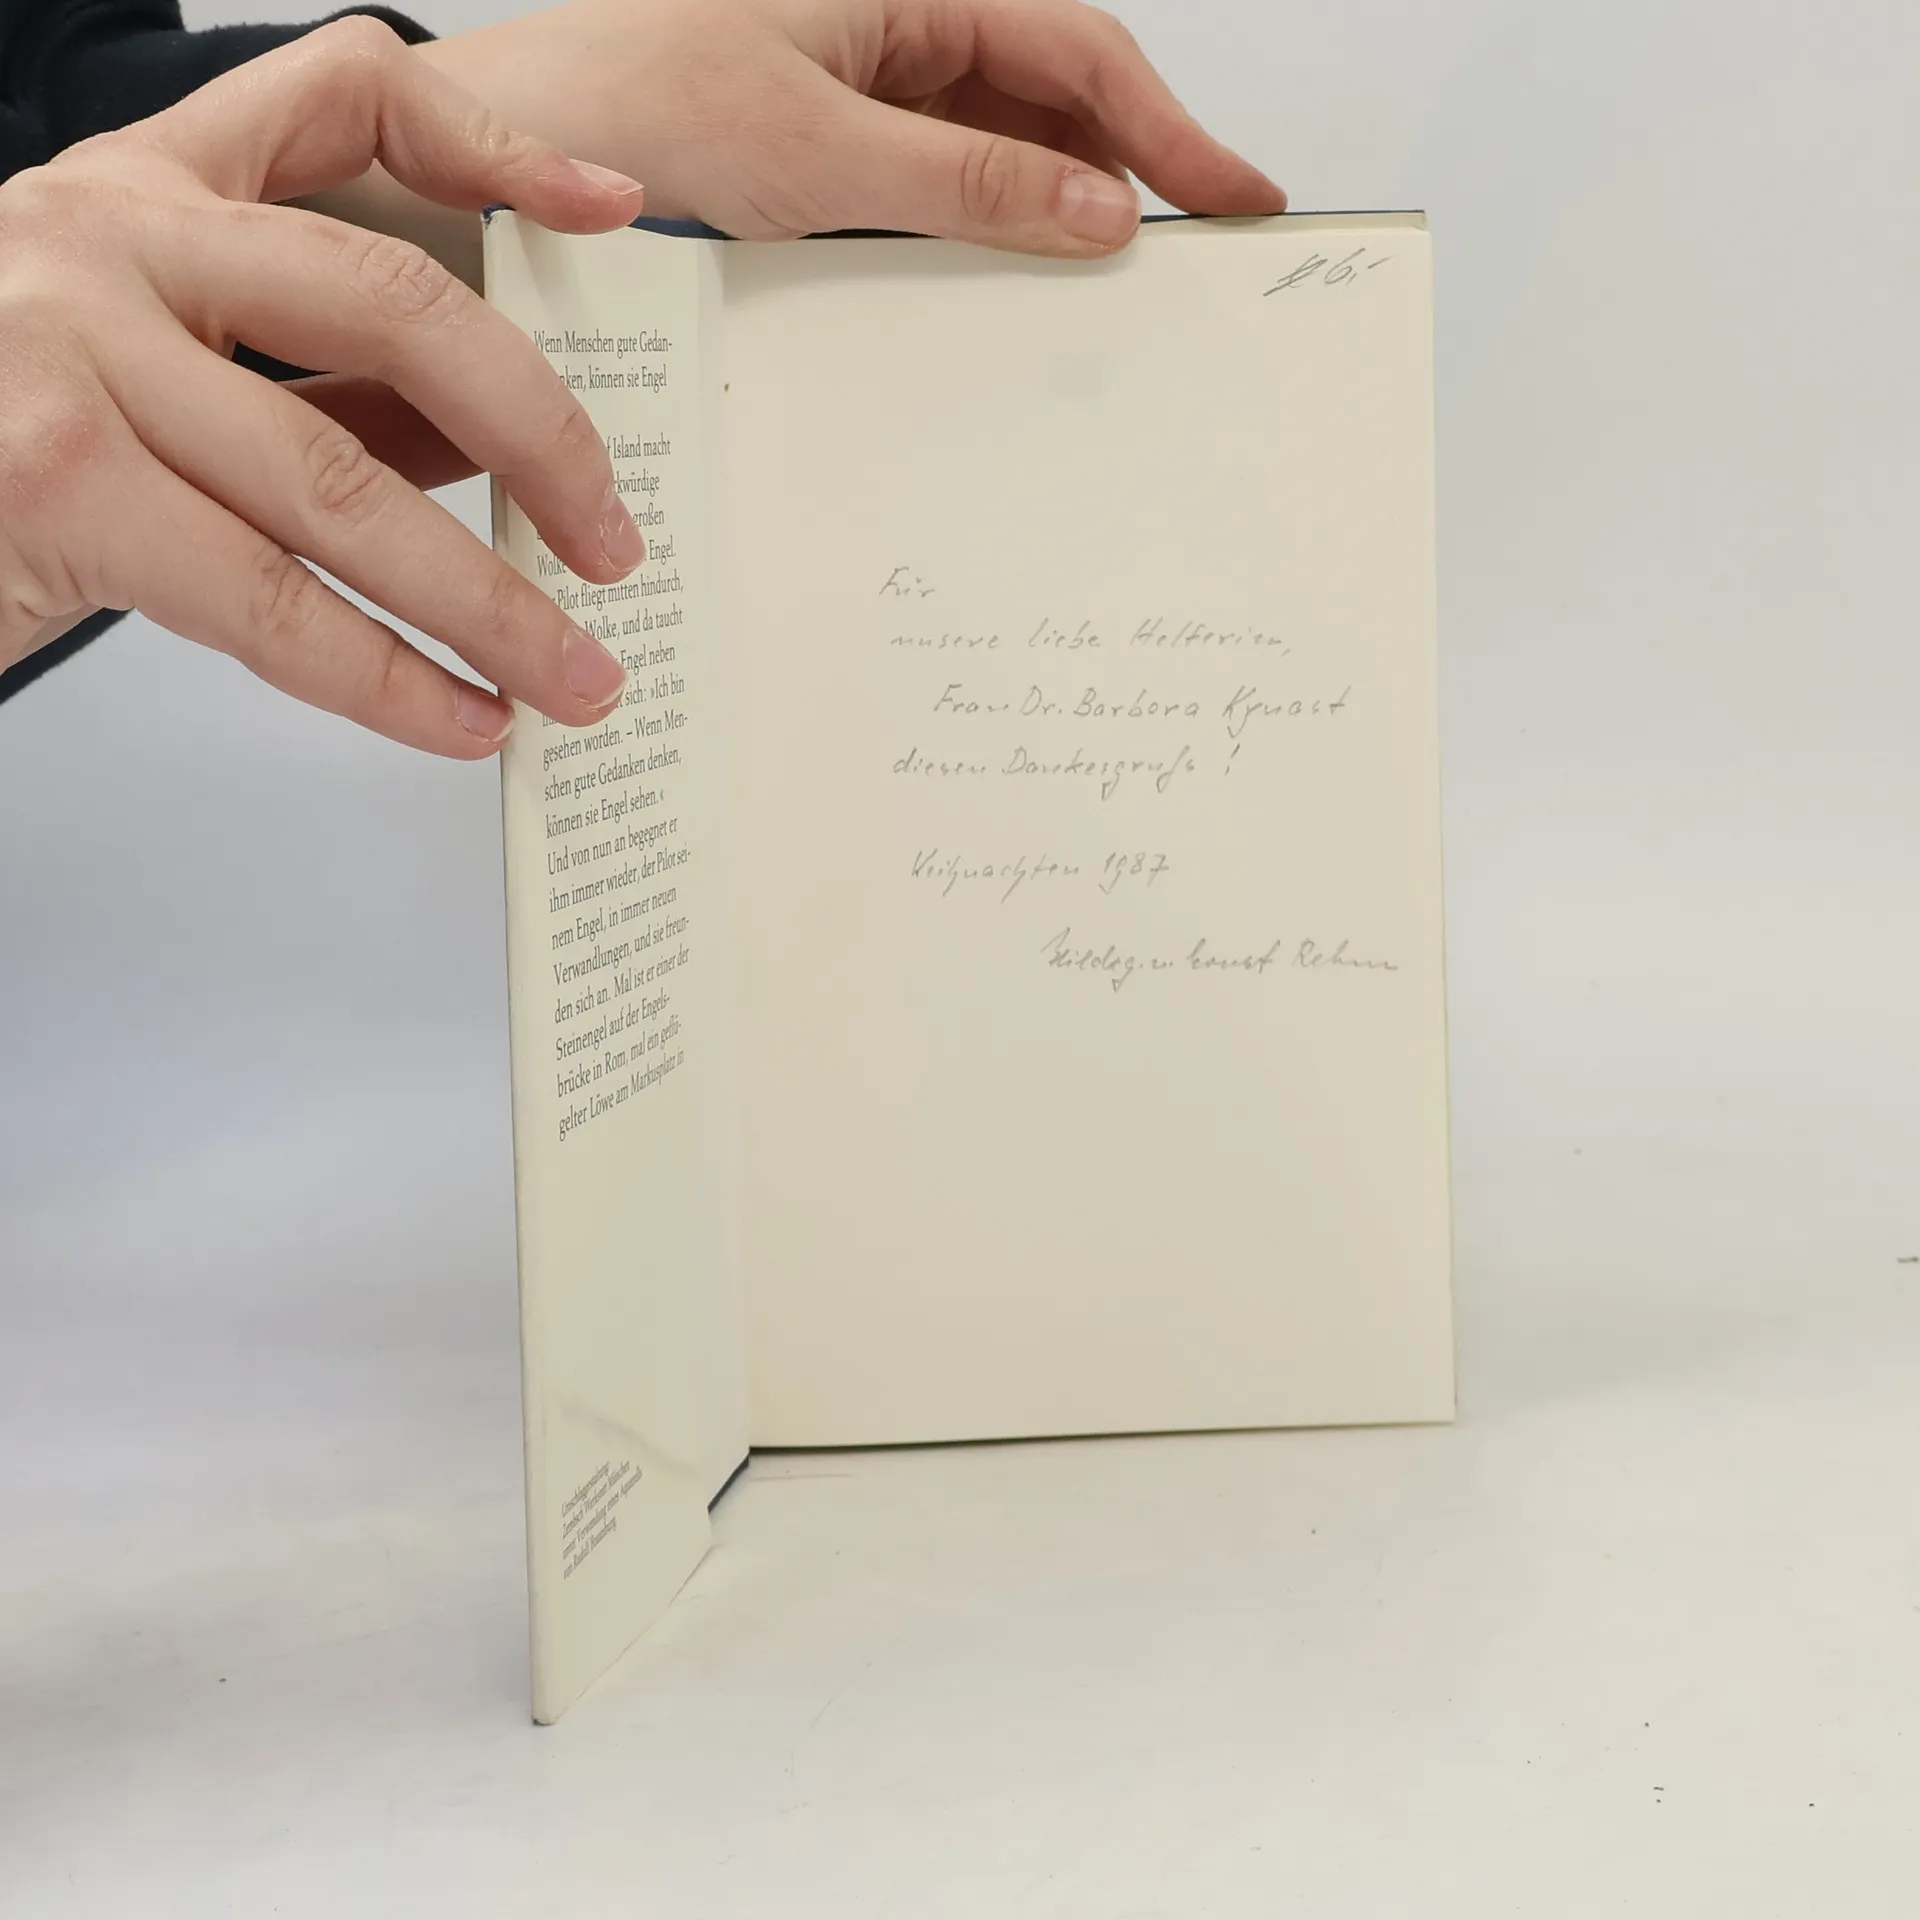 Wenn Menschen gute Gedan-
nken, können sie Engel
f Island macht
kwürdige
großen
Wolke Engel.
Pilot fliegt mitten hindurch,
Wolke, und da taucht
Engel neben
sich: »Ich bin
gesehen worden. – Wenn Men-
schen gute Gedanken denken,
können sie Engel sehen.«
Und von nun an begegnet er
ihm immer wieder, der Pilot sei-
nem Engel, in immer neuen
Verwandlungen, und sie freun-
den sich an. Mal ist er einer der
Steinengel auf der Engels-
brücke in Rom, mal ein geflü-
gelter Löwe am Markusplatz in
Umschlaggestaltung:
Zembsch' Werkstatt München
unter Verwendung eines Aquarells
von Rudolf
6,-
Für
unsere liebe Helferin,
Frau Dr. Barbara Kynast
diesen Dankesgruß!
Weihnachten 1987
Hildeg. u. Ernst Rehm